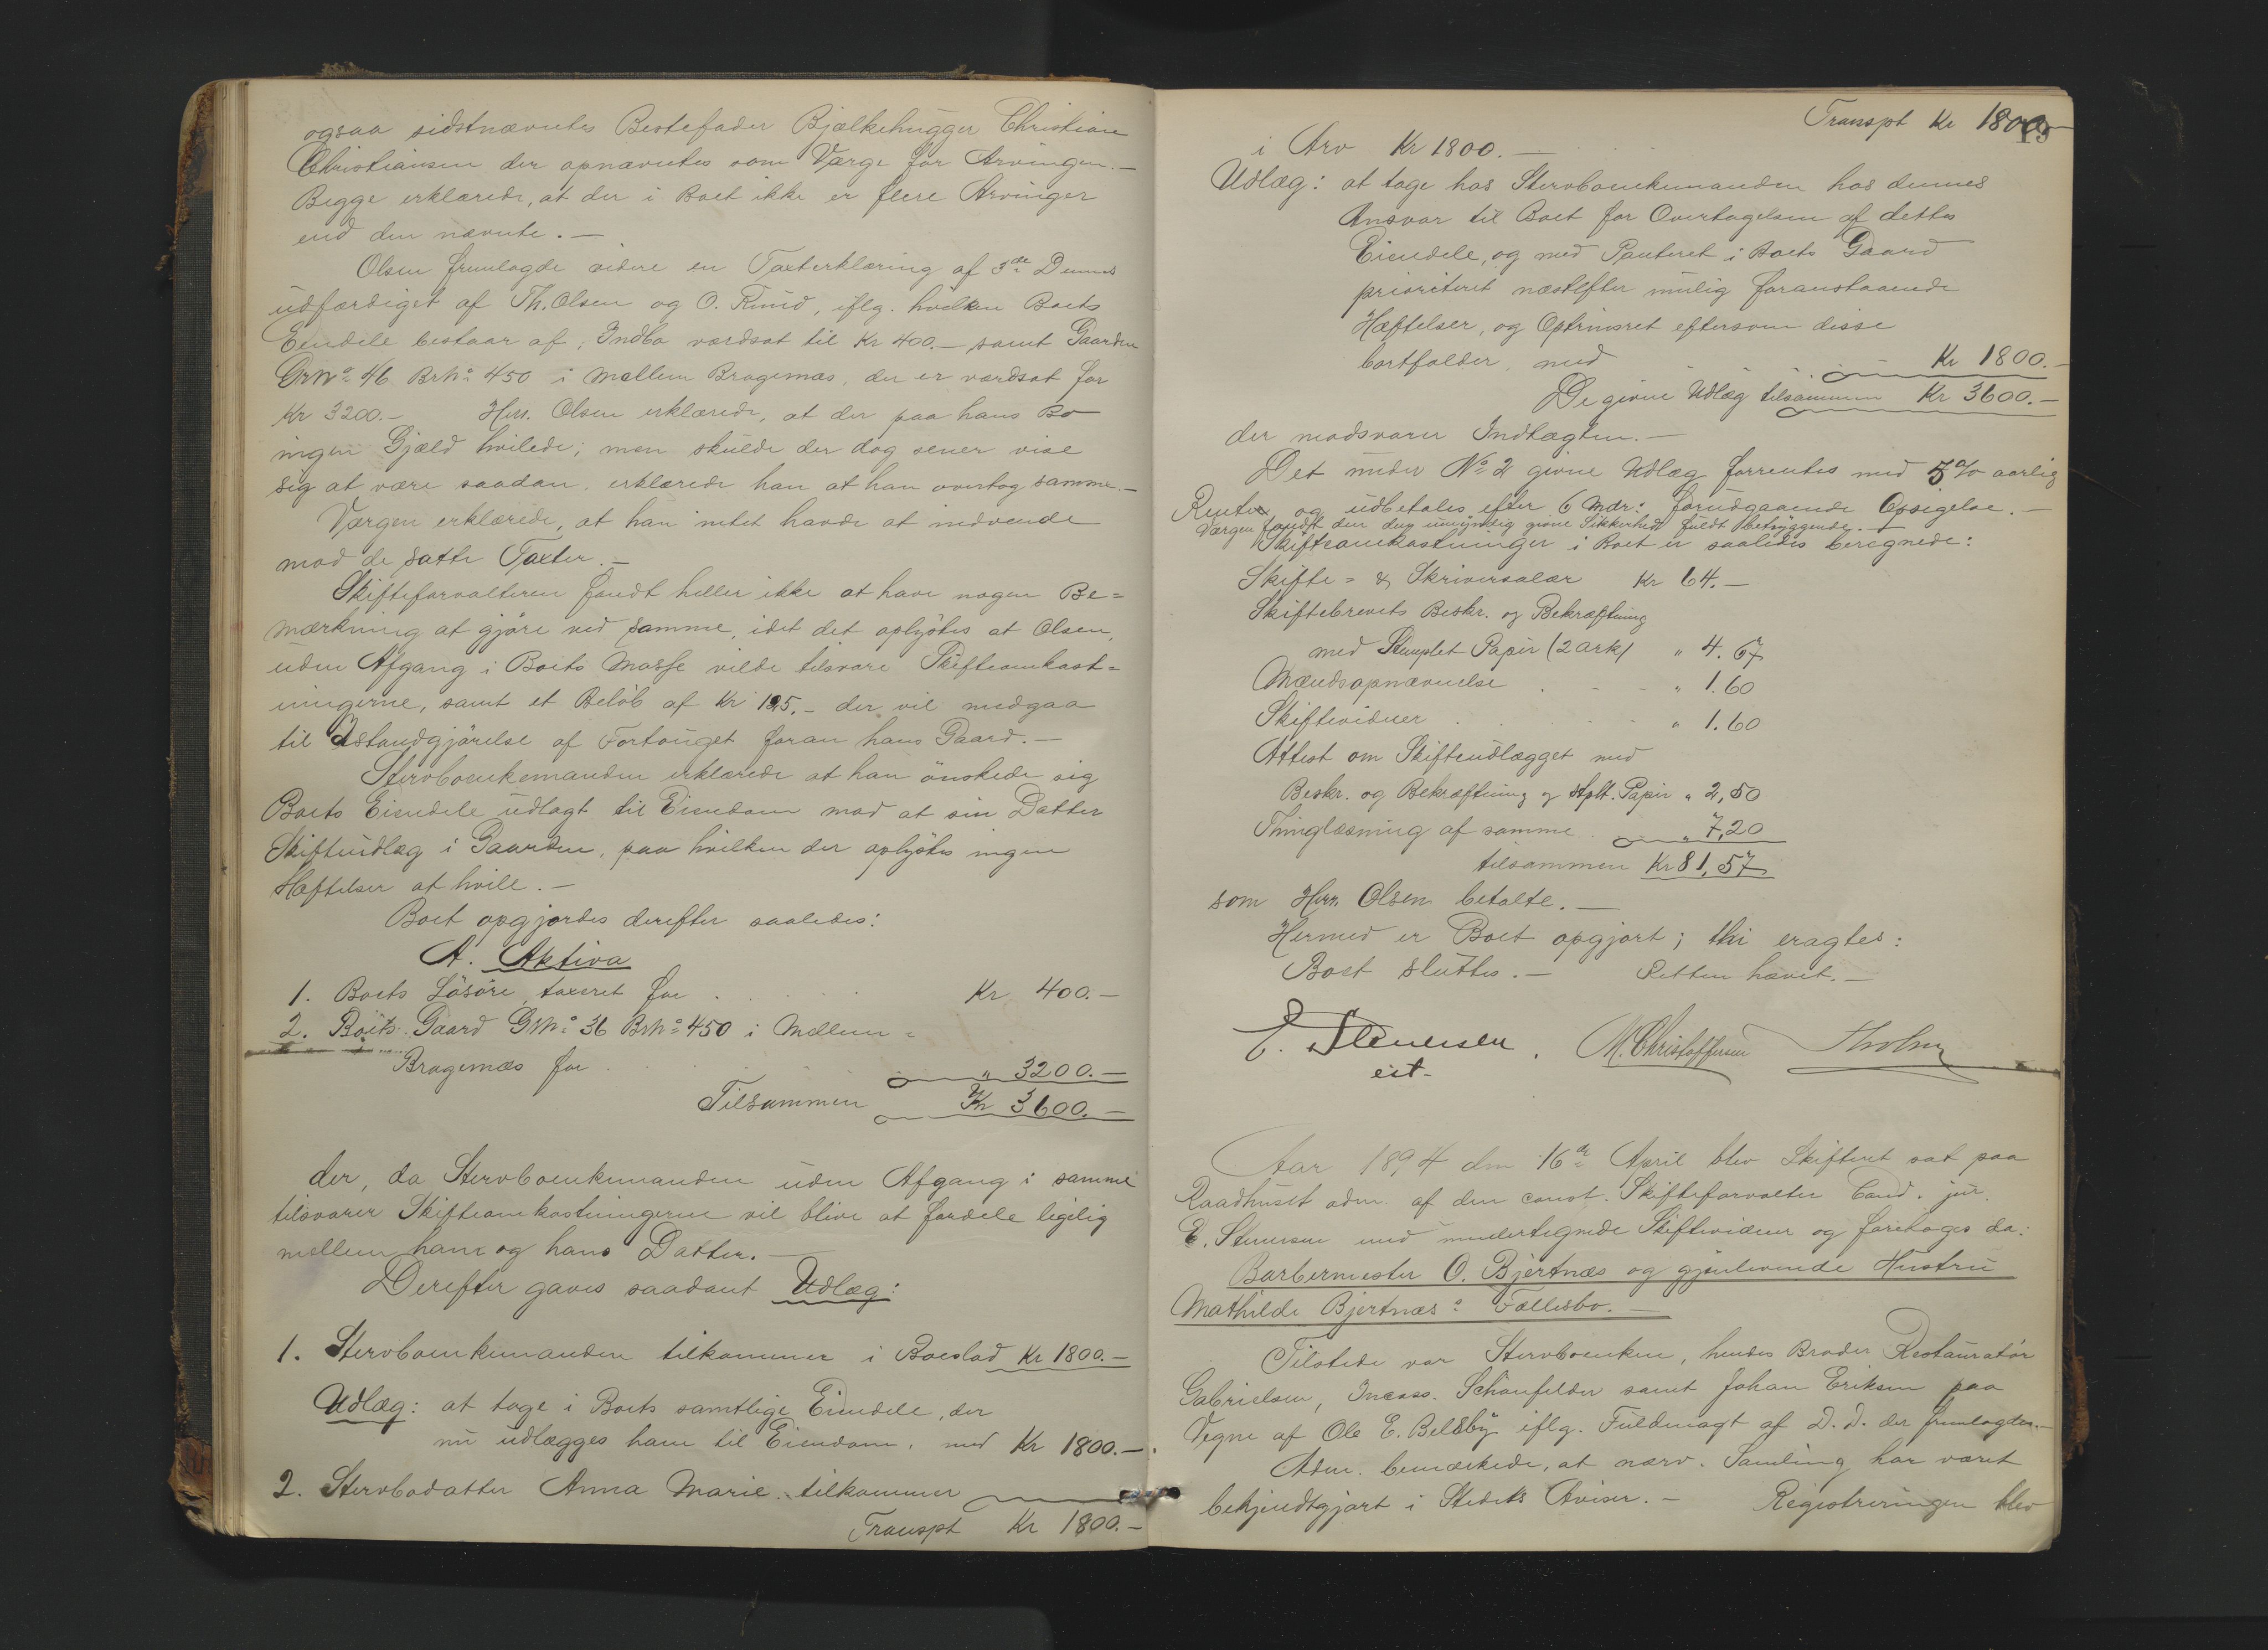 ogsaa sidstnævntes Bestefader Bjælkehugger Christian
Christiansen der opnævntes som Værge for Arvingen.—
Begge erklærede, at der i Boet ikke er flere Arvinger
end den nævnte.—
Olsen fremlagde videre en Taxterklæring af 3de Dennes
udfærdiget af Th. Olsen og O. Rund, iflg. hvilken Boets
Eiendele bestaar af; Indbo værdsat til Kr 400.— samt Gaarden
GrNo 46 BrNo 450 i Mellem Bragernæs, der er værdsat for
Kr 3200.— Herr. Olsen erklærede, at der paa hans Bo
ingen Gjæld hvilede; men skulde der dog sener vise
sig at være saadan, erklærede han at han overtog samme.—
Værgen erklærede, at han intet havde at indvende
mod de satte Taxter.—
Skifteforvalteren fandt heller ikke at have nogen Be=
mærkning at gjøre ved samme, idet det oplystes at Olsen,
uden Afgang i Boets Masse vilde tilsvare Skifteomkost=
ningerne, samt et Beløb af Kr 125.— der vil medgaa
til Istandgjørelse af Fortouget foran hans Gaard.—
Stervboenkemanden erklærede at han ønskede sig
Boets Eiendele udlagt til Eiendom mod at sin Datter
Skifteudlæg i Gaarden, paa hvilken der oplystes ingen
Hæftelser at hvile.—
Boet opgjordes derefter saaledes:
A. Aktiva
1. Boets Løsøre, taxeret for Kr 400.—
2. Boets Gaard GrNo 36 BrNo 450 i Mellem=
Bragernæs for " 3200.—
Tilsammen Kr 3600.—
der, da Stervboenkemanden uden Afgang i samme
tilsvarer Skifteomkostningerne vil blive at fordele ligelig
mellem ham og hans Datter.—
Derefter gaves saadant Udlæg:
1. Stervboenkemanden tilkommer i Boeslod Kr 1800.—
Udlæg: at tage i Boets samtlige Eiendele, der
nu udlægges ham til Eiendom, med Kr 1800.—
2. Stervbodatter Anna Marie tilkommer
Transpt Kr 1800.—
Transpt Kr 1800.—
15
i Arv Kr 1800.—
Udlæg: at tage hos Stervboenkemanden hos dennes
Ansvar til Boet for Overtagelsen af dettes
Eiendele, og med Panteret i Boets Gaard
prioriteret næstefter mulig foranstaaende
Hæftelser, og Optrinsret eftersom disse
bortfalder, med Kr 1800.—
De givne Udlæg tilsammen Kr 3600.—
der modsvarer Indtægten.—
Det under No 2 givne Udlæg forrentes med 5% aarlig
Renter og udbetales efter 6 Mdr: forudgaaende Opsigelse.—
Værgen fandt den den umyndig givne Sikkerhed fuldt betryggende.—
Skifteomkostninger i Boet er saaledes beregnede:
Skifte= & Skriversalær Kr 64.—
Skiftebrevets Beskr. og Bekræftning
med Stemplet Papir (2 ark) " 4.67
Mændsopnævnelse " 1.60
Skiftevidner " 1.60
Attest om Skifteudlægget med
Beskr. og Bekræftning og stplt. Papir " 2,50
Thinglæsning af samme " 7,20
tilsammen Kr 81,57
som Herr. Olsen betalte.—
Hermed er Boet opgjort; thi eragtes:
Boet sluttes.— Retten hævet.—
E. Stenersen
cst.
M. Christoffersen
Aar 1894 den 16de April blev Skifteret sat paa
Raadhuset adm. af den const. Skifteforvalter Cand. jur.
E. Stenersen med undertegnede Skiftevidner og foretoges da:
Barbermester O. Bjertnæs og gjenlevende Hustru
Mathilde Bjertnæs: Fællesbo.—
Tilstede var Stervboenken, hendes Broder Restauratør
Gabrielsen, Incass. Schönfelder samt Johan Eriksen paa
Vegne af Ole E. Belsby iflg. Fuldmagt af D. d. der fremlagdes.—
Adm. bemærkede, at nærv. Samling har været
bekjendtgjort i Stedets Aviser.— Registreringen blev